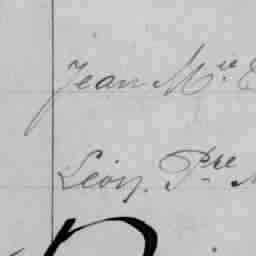 Jean M.ie
Léon. P.re